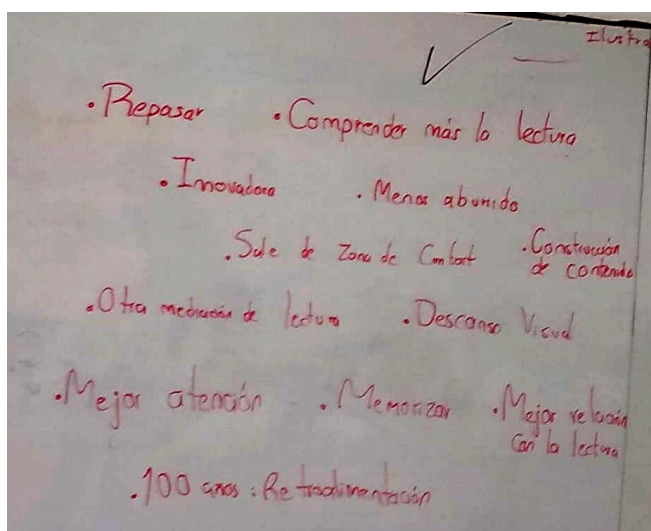 Ilustra
• Repasar • Comprender más la lectura
• Innovadora • Menos aburrido
• Sale de Zona de Confort • Construcción
de contenido
• Otra mediación de lectura • Descanso Visual
• Mejor atención • Memorizar • Mejor relación
con la lectura
• 100 años: Retroalimentación